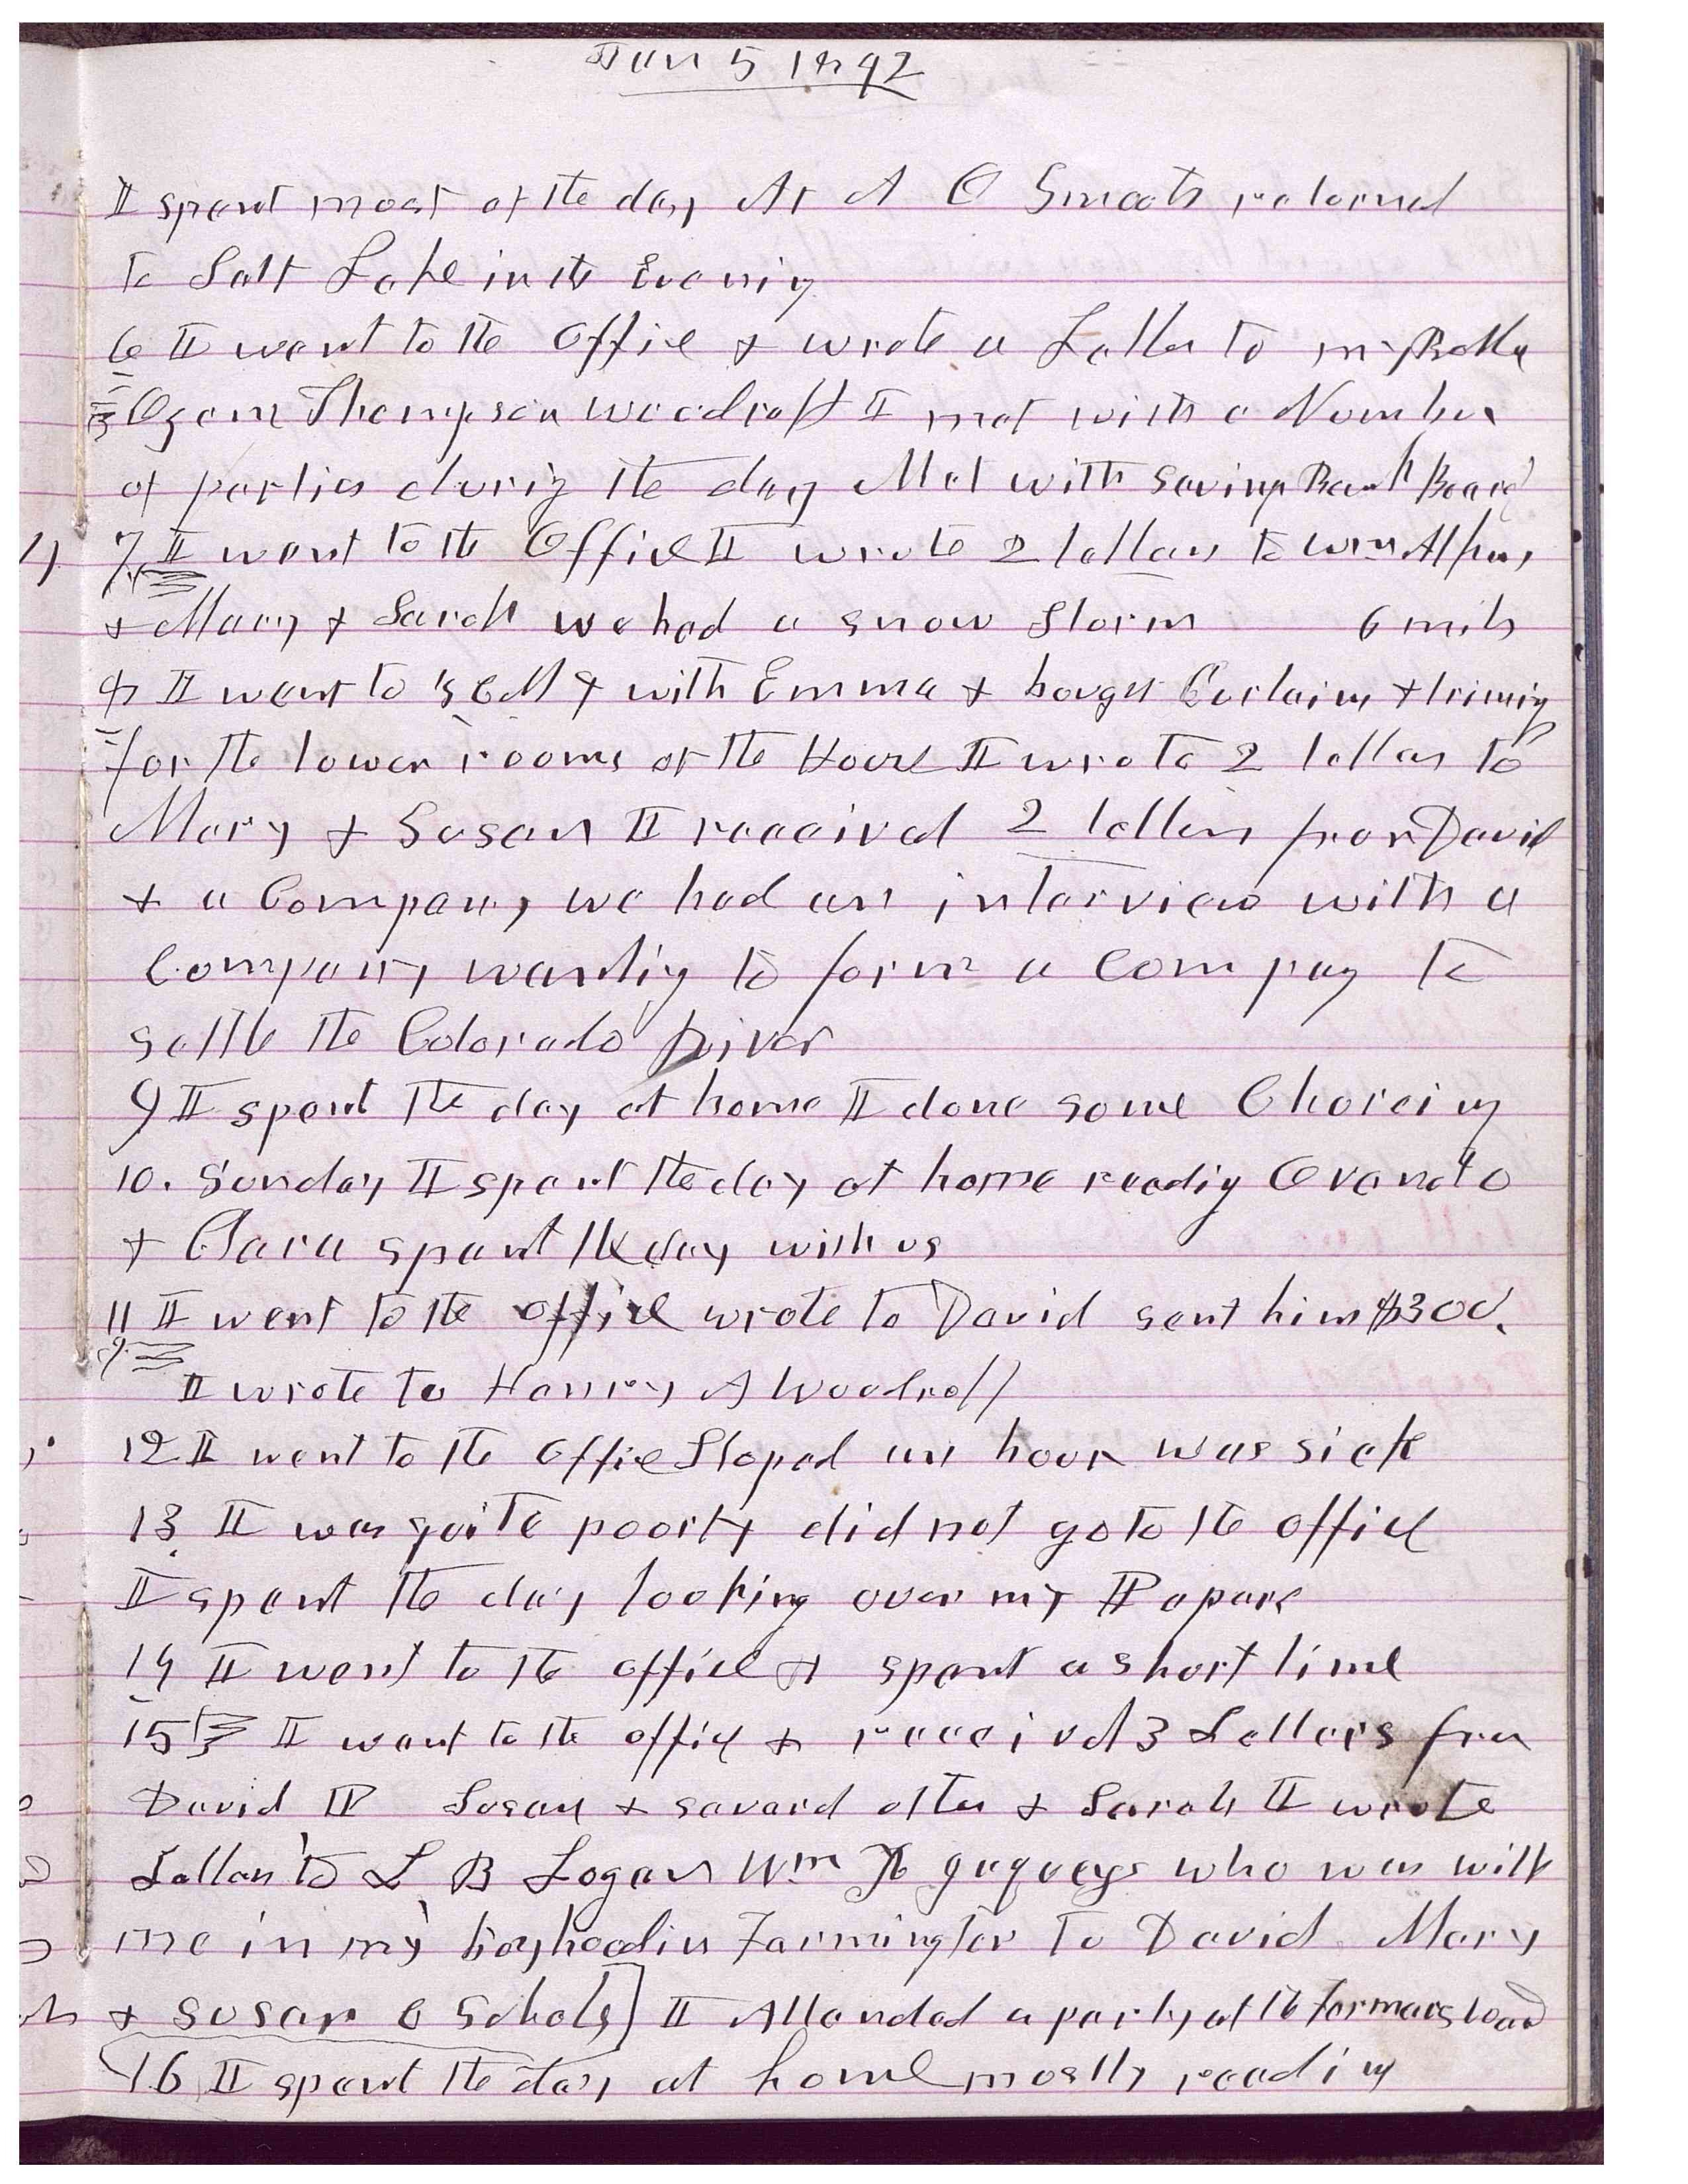 Jan 5 1892
I spent most of the day At A O Smoots returned
to Salt Lake in the Evening
6 I went to the Office & wrote a Letter to my Brother
Ozem Thompson Woodruff I met with a Number
of parties during the day Met with Savings Bank Board
7 I went to the Office I wrote 2 letters to Wm Alpheus
& Mary & Sarah we had a snow storm 6 mils
8 I went to Z C M I with Emma & bought Curtains & triming
for the lower rooms of the House I wrote 2 letters to
Mary & Susan I received 2 letters from David
& a Company we had an interview with a
Company wanting to form a Compay to
settle the Colorado River
9 I spent the day at home I done some Choreing
10. Sunday I spent the day at home reading Ovando
& Clara spent the day with us
11 I went to the office wrote to David sent him $300.
I wrote to Henry A Woodruff
12 I went to the Office Stoped an hour was sick
13 I was quite poorly did not go to the office
I spent the day looking over my Papers
14 I went to the office & spent a short time
15 I went to the office & received 3 Letters from
David P Susan & several other & Sarah I wrote
Letters to L B Logan Wm H who was with
me in my boyhood in Farmington To David Mary
& Susan C Scholes] I Attended a party at the Farmers ward
16 I spent the day at home mostly reading